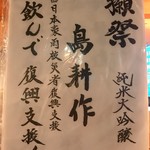 獺祭
純米大吟醸
島耕作
西日本豪雨被災者復興支援
飲んで復興支援